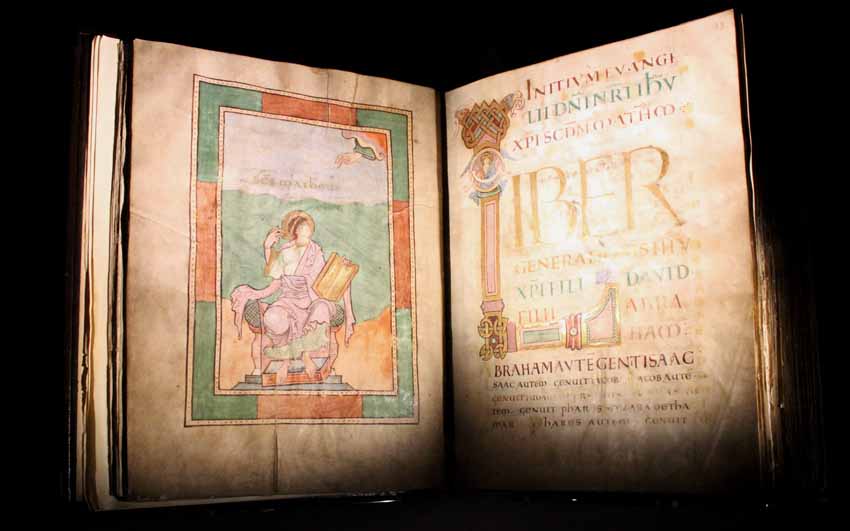 INITIVM EVANGE
LII DNI NRI IHV
XPI SCDM MATHM
LIBER
IHV
XPI FILI DAVID
FILII ABRA
HAM
BRAHAM AVTE GENT ISAAC
SAAC AUTEM GENUIT IACOB IACOB AUTE
GENUIT
TEM GENUIT PHARES ZARA DE THA
MAR PHARES AUTEM GENUIT